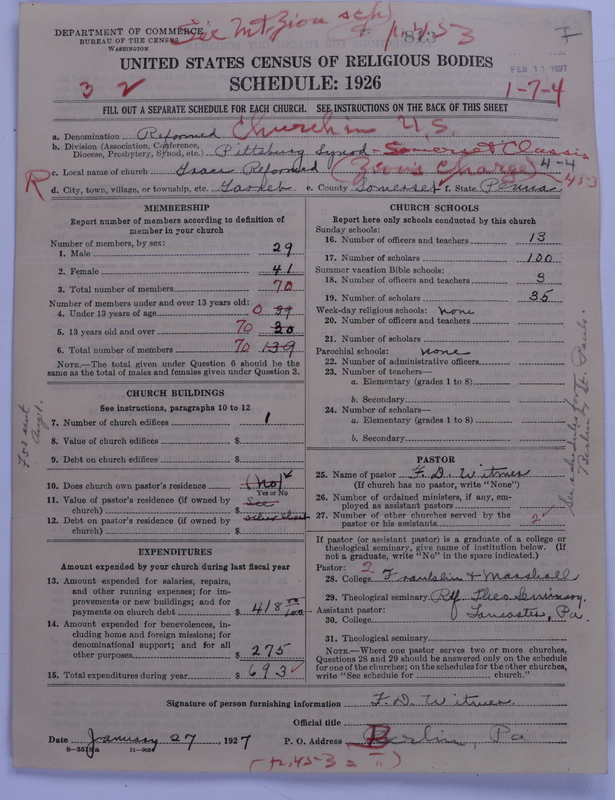 See Mt Zion sch)
DEPARTMENT OF COMMERCE
BUREAU OF THE CENSUS
WASHINGTON
p. 453
FEB 11 1927
UNITED STATES CENSUS OF RELIGIOUS BODIES
SCHEDULE: 1926
3 2
1-7-4
FILL OUT A SEPARATE SCHEDULE FOR EACH CHURCH. SEE INSTRUCTIONS ON THE BACK OF THIS SHEET
a. Denomination Reformed Church in U.S.
b. Division (Association, Conference, Diocese, Presbytery, Synod, etc.) Pittsburg Synod - Somerset Classis
c. Local name of church Grace Reformed (Zions Charge) 4-4
R d. City, town, village, or township, etc. Garrett e. County Somerset f. State Penna 453
MEMBERSHIP
Report number of members according to definition of
member in your church
Number of members, by sex:
1. Male 29
2. Female 41
3. Total number of members 70
Number of members under and over 13 years old:
4. Under 13 years of age 0 39
5. 13 years old and over 70 30
6. Total number of members 70 139
NOTE.—The total given under Question 6 should be
same as the total of males and females given under Question 3.
CHURCH BUILDINGS
See instructions, paragraphs 10 to 12
7. Number of church edifices 1
8. Value of church edifices $
9. Debt on church edifices $
10. Does church own pastor's residence (No)
Yes or No
11. Value of pastor's residence (if owned by
church) $ See
12. Debt on pastor's residence (if owned by
church) $ other sheet
EXPENDITURES
Amount expended by your church during last fiscal year
13. Amount expended for salaries, repairs,
and other running expenses; for im-
provements or new buildings; and for
payments on church debt $ 418 00/100
14. Amount expended for benevolences, in-
cluding home and foreign missions; for
denominational support; and for all
other purposes $ 275
15. Total expenditures during year $ 693
CHURCH SCHOOLS
Report here only schools conducted by this church
Sunday schools:
16. Number of officers and teachers 13
17. Number of scholars 100
Summer vacation Bible schools:
18. Number of officers and teachers 3
19. Number of scholars 35
Week-day religious schools: none
20. Number of officers and teachers
21. Number of scholars
Parochial schools: none
22. Number of administrative officers
23. Number of teachers—
a. Elementary (grades 1 to 8)
b. Secondary
24. Number of scholars—
a. Elementary (grades 1 to 8)
b. Secondary
PASTOR
25. Name of pastor F. D. Witmer
(If church has no pastor, write "None")
26. Number of ordained ministers, if any, em-
ployed as assistant pastors
27. Number of other churches served by the
pastor or his assistants 2
If pastor (or assistant pastor) is a graduate of a college or
theological seminary, give name of institution below. (If
not a graduate, write "No" in the space indicated.)
Pastor: 2
28. College Franklin & Marshall
29. Theological seminary Ref Theo Seminary.
Assistant pastor: Lancaster, Pa.
30. College
31. Theological seminary
NOTE.—Where one pastor serves two or more churches,
Questions 28 and 29 should be answered only on the schedule
for one of the churches; on the schedules for the other churches,
write "See schedule for church."
See schedules for
Berlin & St. Pauls.
Signature of person furnishing information F. D. Witmer
Official title
Date January 27, 1927 P. O. Address Berlin, Pa
8-5518a 11-9051